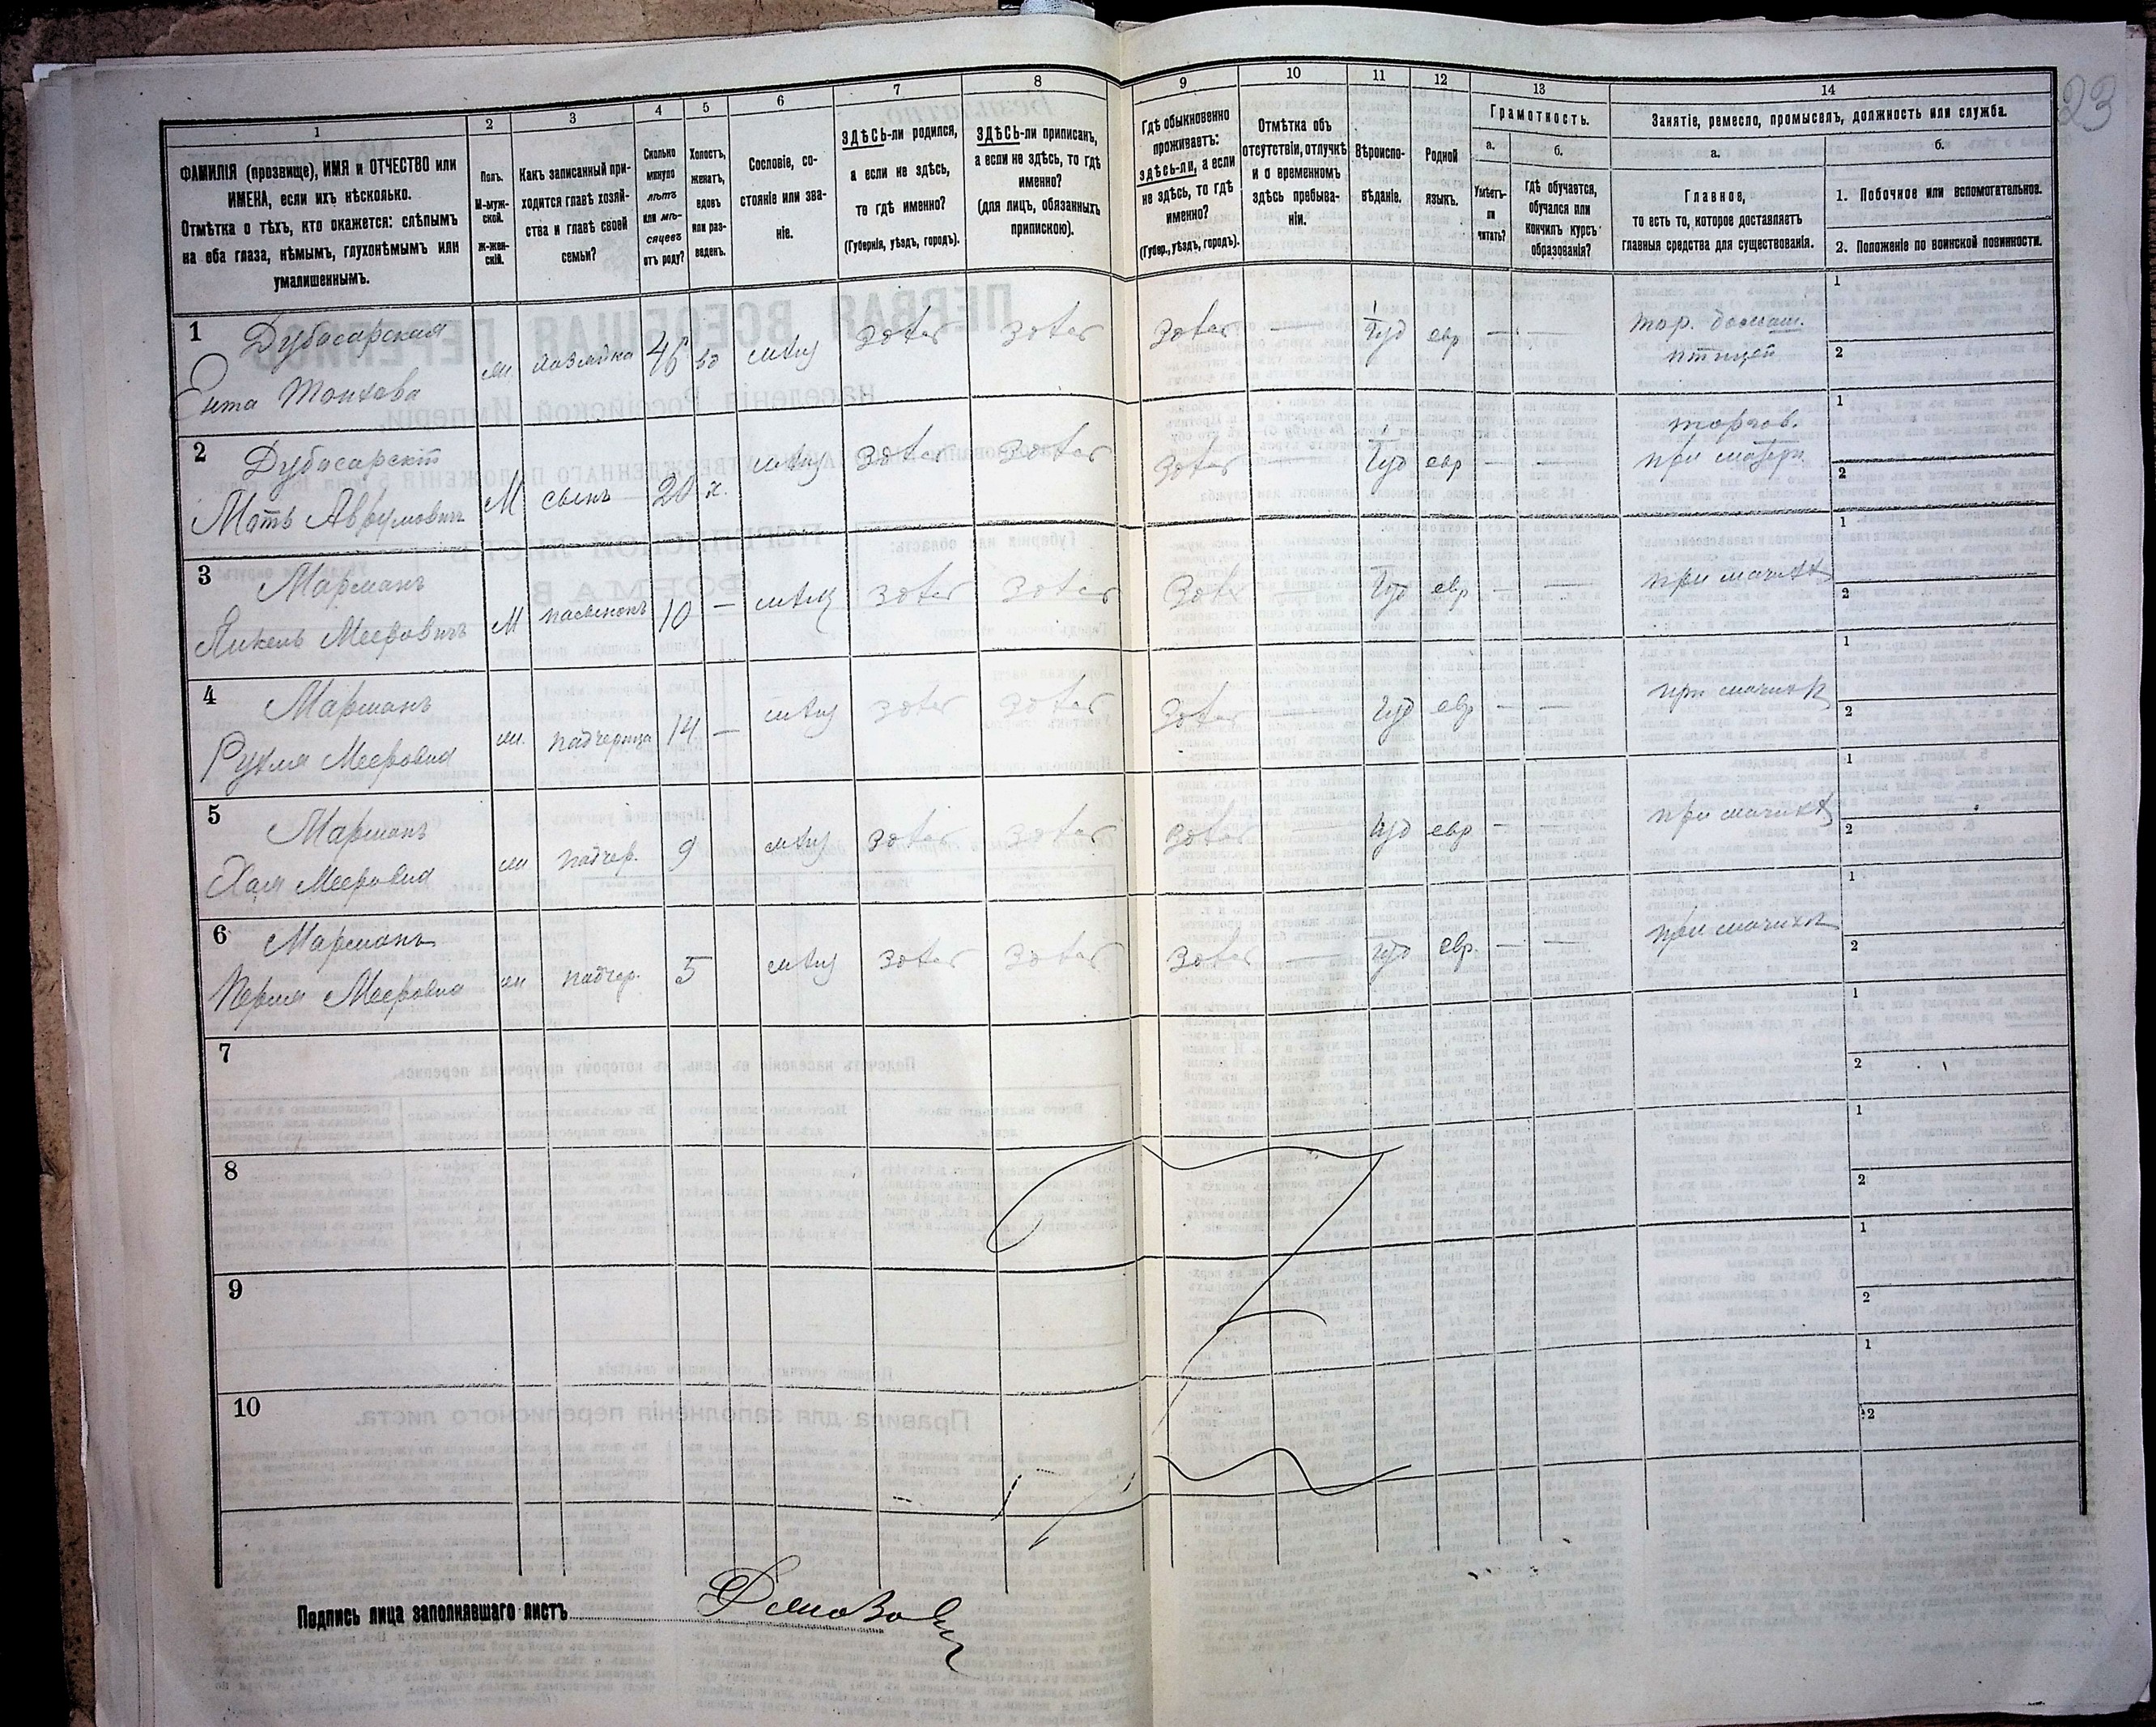 23
1 2 3 4 5 6 7 8 9 10 11 12 13 14
ФАМИЛІЯ (прозвище), ИМЯ и ОТЧЕСТВО или
ИМЕНА, если ихъ нѣсколько.
Отмѣтка о тѣхъ, кто окажется: слѣпымъ
на оба глаза, нѣмымъ, глухонѣмымъ или
умалишеннымъ.
Полъ.
М-муж-
ской.
Ж-жен-
скій.
Какъ записанный при-
ходится главѣ хозяй-
ства и главѣ своей
семьи?
Сколько
минуло
лѣтъ
или мѣ-
сяцевъ
отъ роду?
Холостъ,
женатъ,
вдовъ
или раз-
веденъ.
Сословіе, со-
стояніе или зва-
ніе.
ЗДѢСЬ-ли родился,
а если не здѣсь,
то гдѣ именно?
(Губернія, уѣздъ, городъ).
ЗДѢСЬ-ли приписанъ,
а если не здѣсь, то гдѣ
именно?
(для лицъ, обязанныхъ
припискою).
Гдѣ обыкновенно
проживаетъ:
здѣсь-ли, а если
не здѣсь, то гдѣ
именно?
(Губер., уѣздъ, городъ).
Отмѣтка объ
отсутствіи, отлучкѣ
и о временномъ
здѣсь пребыва-
ніи.
Вѣроиспо-
вѣданіе.
Родной
языкъ.
Грамотность.
а.
Умѣетъ-
ли
читать?
б.
Гдѣ обучается,
обучался или
кончилъ курсъ
образованія?
Занятіе, ремесло, промыселъ, должность или служба.
а.
Главное,
то есть то, которое доставляетъ
главныя средства для существованія.
б.
1. Побочное или вспомогательное.
2. Положеніе по воинской повинности.
1 Дубасарская
ж. хозяйка 45 вд мѣщ здѣсь здѣсь здѣсь — Іуд евр — — тор. домаш.
птицей
1
2
2 Дубасарскій
М сынъ 20 х. мѣщ здѣсь здѣсь здѣсь Іуд евр — — торгов.
при матери
1
2
3 Марманъ
Янкель Мееровичъ М пасынокъ 10 — мѣщ здѣсь здѣсь здѣсь — Іуд евр — — при мачихѣ
1
2
4 Марманъ
Рухля Мееровна ж. падчерица 14 — мѣщ здѣсь здѣсь здѣсь — Іуд евр — — при мачихѣ
1
2
5 Марманъ
Хая Мееровна ж падчер. 9 мѣщ здѣсь здѣсь здѣсь — Іуд евр — — при мачихѣ
1
2
6 Марманъ
Перля Мееровна ж падчер. 5 мѣщ здѣсь здѣсь здѣсь — Іуд евр. — — при мачихѣ
1
2
7
1
2
8
1
2
9
1
2
10
1
2
Подпись лица заполнявшаго листъ